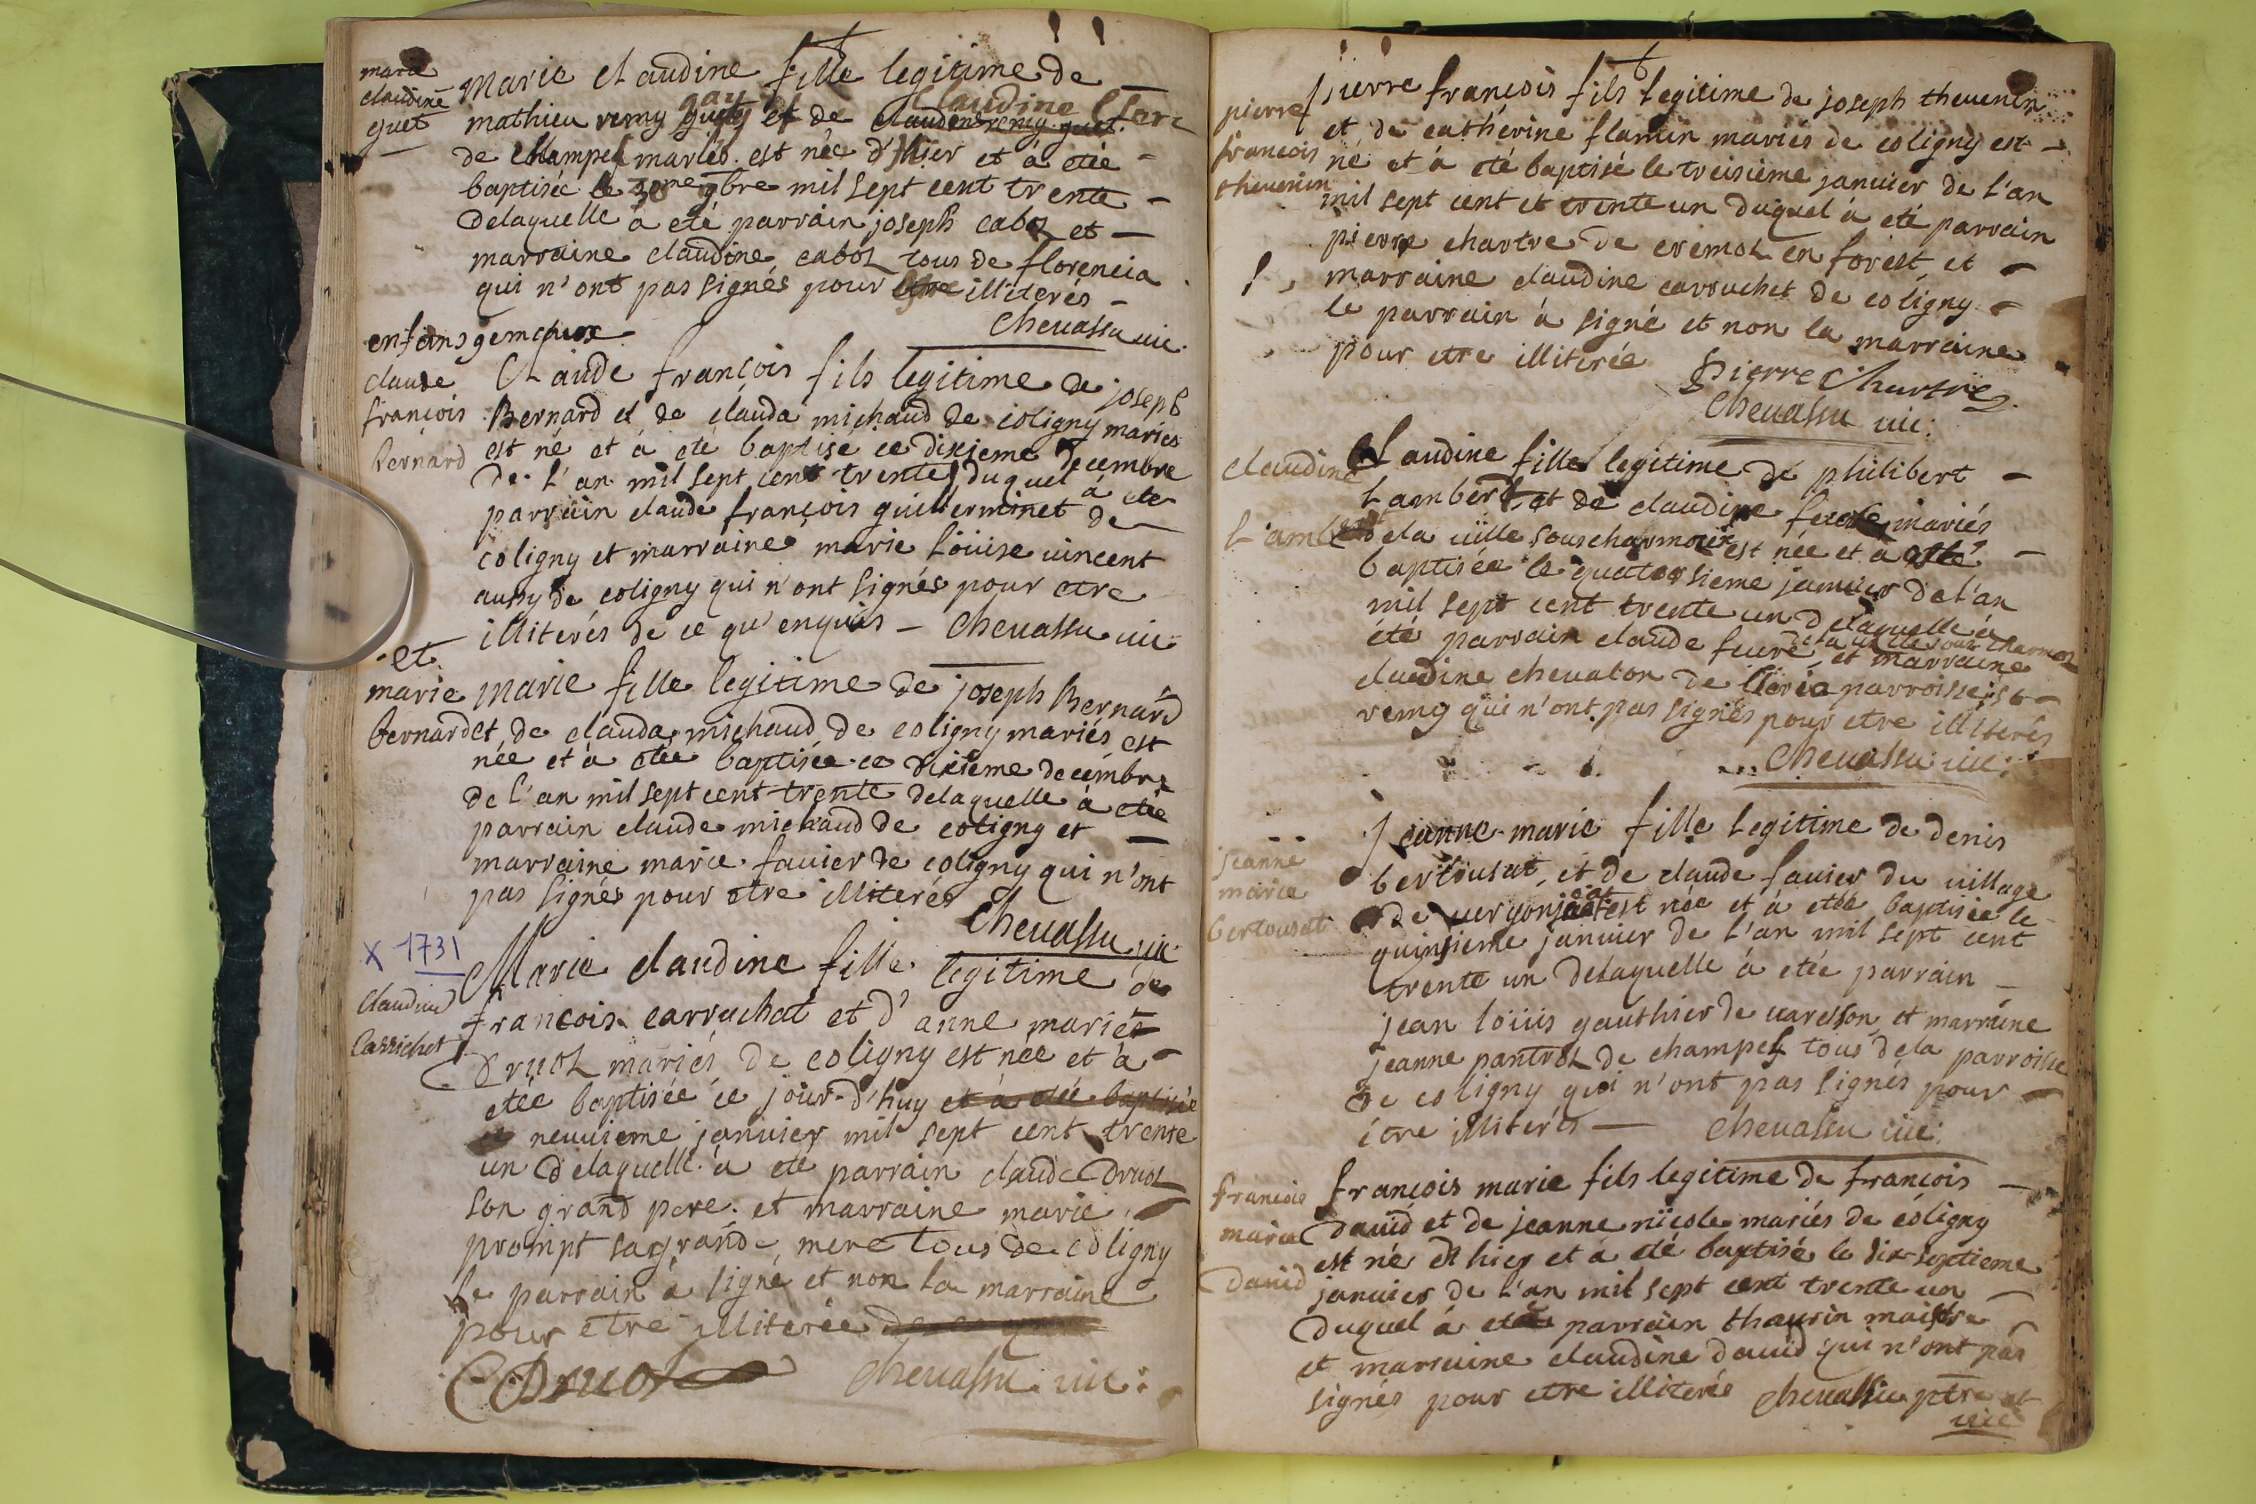 marie
claudine
guet
Marie claudine fille legitime de
gay claudine
mathieu remy et de
de champel mariés est née d'hier et à etée
baptisée le 30me 9bre mil sept cent trente
delaquelle à eté parrain joseph cabot et
marraine claudine cabot tous de florencia
qui n'ont pas signés pour etre illiterés
Chevassu vic
enfans gemeaux
claude
françois
bernard
Claude françois fils legitime de joseph
Bernard et de clauda michaud de coligny mariés
est né et à eté baptisé ce dixieme decembre
de l'an mil sept cent trente duquel à eté
parrain claude françois guillerminet de
coligny et marraine marie loüise vincent
aussy de coligny qui n'ont signés pour etre
illiterés de ce qu'enquis Chevassu vic
et
marie
bernard
marie fille legitime de joseph Bernard
et de clauda michaud de coligny mariés est
née et à etée baptisée ce dixieme decembre
de l'an mil sept cent trente delaquelle à etée
parrain claude michaud de coligny et
marraine marie favier de coligny qui n'ont
pas signés pour etre illiterés
Chevassu vic
x 1731
claudine
Carrichet
Marie claudine fille legitime de
françois carruchat et d'anne mariés
Druot mariés de coligny est née et à
etée baptisée ce jour-d'huy et à eté baptisée
neuvieme janvier mil sept cent trente
un delaquelle à eté parrain claude Druot
son grand pere et marraine marie
prompt sa grande mere tous de coligny
le parrain à signé et non la marraine
pour etre illiterée
C Druot Chevassu vic:
pierre
françois
thevenin
pierre françois fils legitime de joseph thevenin
et de catherine flamin mariés de coligny est
né et à eté baptisé le treisieme janvier de l'an
mil sept cent et trente un duquel à eté parrain
pierre chartre de cremot en forest et
marraine claudine carruchet de coligny
le parrain à signé et non la marraine
pour etre illiterée
Pierre Chartre
Chevassu vic:
claudine
Lambert
Claudine fille legitime de philibert
Lambert et de claudine mariés
dela ville souscharmoux est née et à esté
baptisée le quatorsieme janvier de l'an
mil sept cent trente un delaquelle à
été parrain claude feuvre dela ville sous charmoz
et marraine
claudine chevalon de lioria parroisse st
remy qui n'ont pas signés pour etre illiterés
Chevassu vic:
jeanne
marie
bertousat
jeanne-marie fille legitime de denis
bertousat, et de claude favier du village
de vergonjeat est née et à etée baptisée le
quinsieme janvier de l'an mil sept cent
trente un delaquelle à etée parrain
jean loüis gauthier de varesson et marraine
jeanne pantrot de champel tous dela parroisse
de coligny qui n'ont pas signés pour
etre illiterés Chevassu vic:
françois
marie
david
françois marie fils legitime de françois
david et de jeanne nicole mariés de coligny
est né d'hier et à eté baptisé le dix septieme
janvier de l'an mil sept cent trente un
duquel à eté parrain thaurin maistre
et marraine claudine david qui n'ont pas
signés pour etre illiterés chevassu ptre et
vic